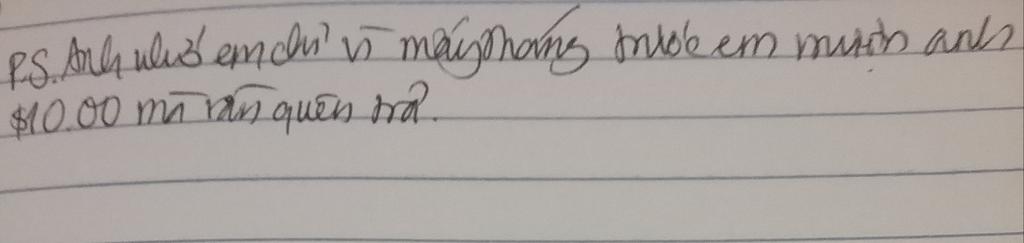 P.S. Anh nhớ em chỉ vì mấy tháng trước em mượn anh
$10.00 mà vẫn quên trả.